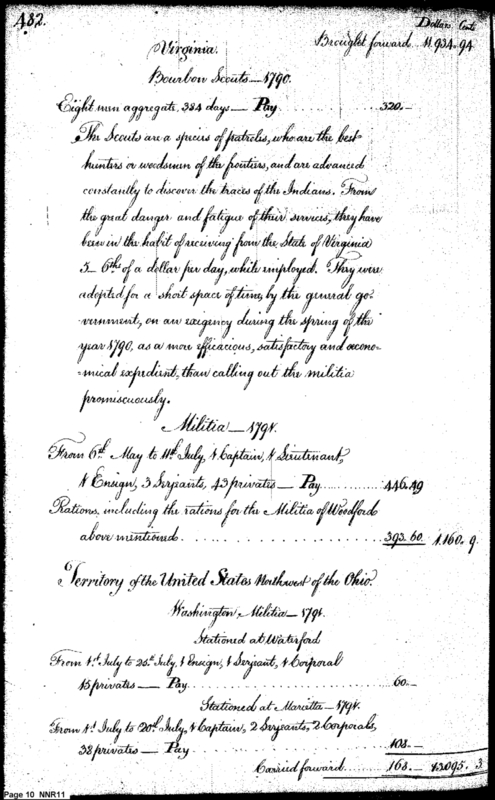 482.
Dollars Cents
Brought forward 11.934.94
Virginia.
Bourbon Scouts—1790.
Eight men aggregate, 384 days — Pay ........ 320.—
The Scouts are a species of patroles, who are the best
hunters or woodsmen of the frontiers, and are advanced
constantly to discover the traces of the Indians. From
the great danger and fatigue of their services, they have
been in the habit of receiving from the State of Virginia
5–6ths of a dollar per day, while employed. They were
adopted for a short space of time, by the general go-
vernment, on an exigency during the spring of the
year 1790, as a more efficacious, satisfactory and œcono-
-mical expedient, than calling out the militia
promiscuously.
Militia — 1791.
From 6th May to 11th July, 1 Captain, 1 Lieutenant,
1 Ensign, 3 Serjeants, 43 privates — Pay ........ 446.49
Rations, including the rations for the Militia of Woodford
above mentioned ........ 393.60 1.160.9
Territory of the United States Northwest of the Ohio.
Washington Militia — 1791.
Stationed at Waterford
From 1st July to July, 1 Ensign, 1 Serjeant, 1 Corporal
15 privates — Pay ........ 60.—
Stationed at Marietta — 1791.
From 1st July to 20th July, 1 Captain, 2 Serjeants, 2 Corporals,
38 privates — Pay ........ 108.—
Carried forward 168.— 13.095.3
Page 10 NNR11